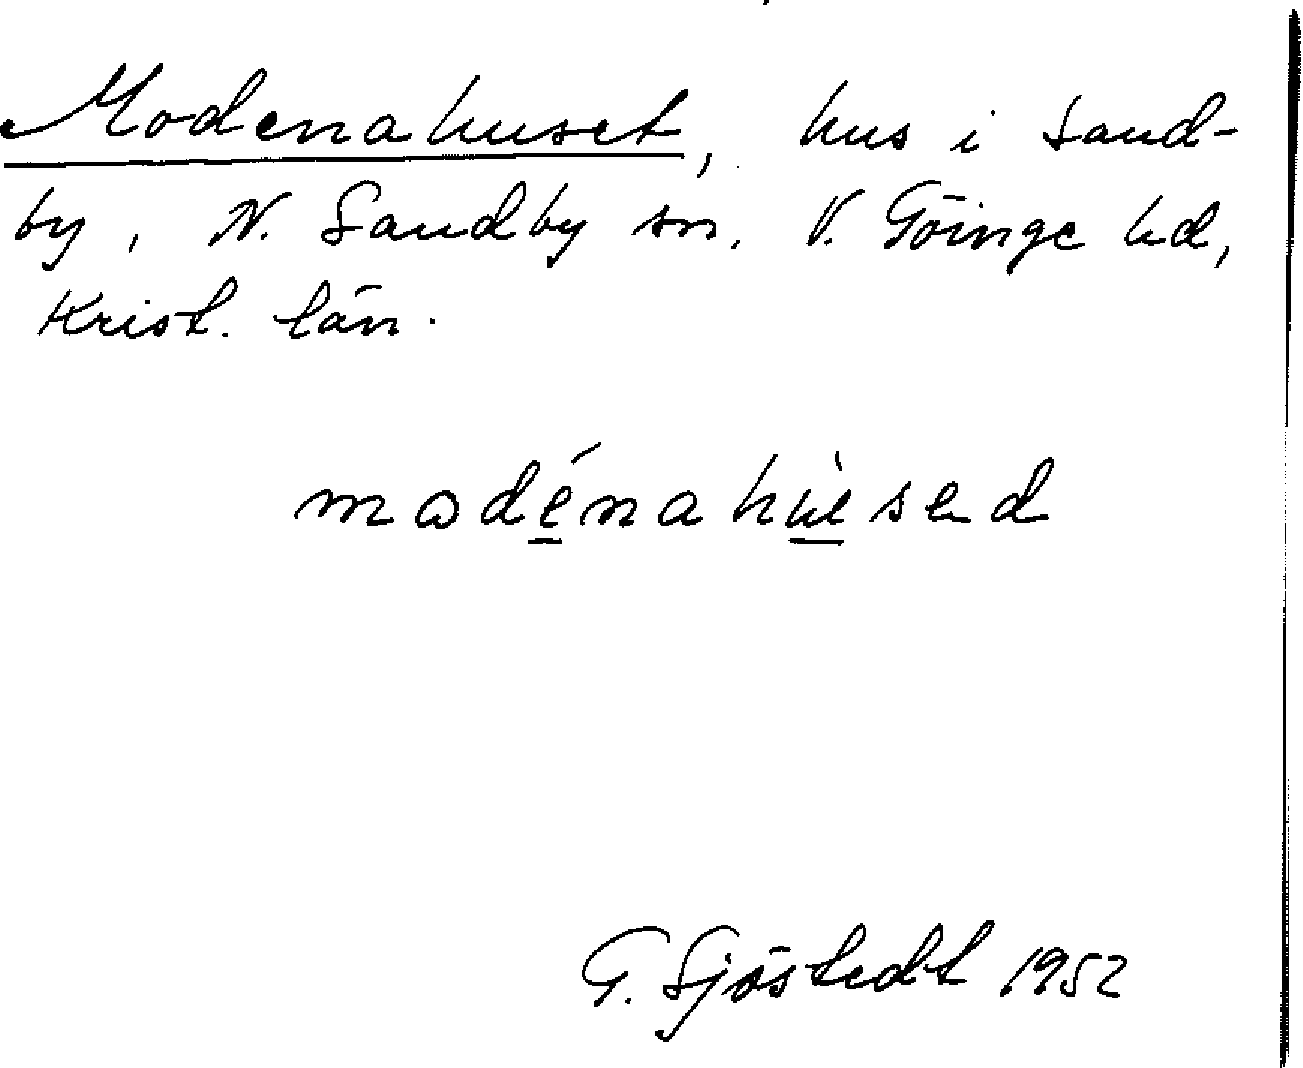 Modenahuset, hus i Sand-
by, N. Sandby sn, V. Göinge hd,
Krist. län.
modénahùsed
G. Sjöstedt 1952